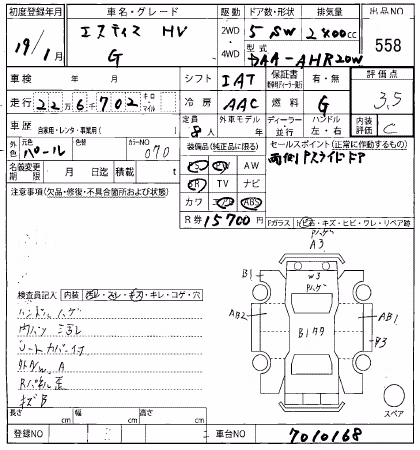 初度登録年月 車名・グレード 駆動 ドア数・形状 排気量 出品NO
19/1月 エスティマ HV 2WD 5 SW 2400cc 558
G 4WD 型式 DAA-AHR20W
車検 年 月 シフト IAT 保証書 有・無 評価点
走行 22万6千702 キロ・マイル 冷房 AAC 燃料 G 3.5
車歴 自家用・レンタ・事業用( ) 定員 外車モデル ディーラー ハンドル 内装評価
8人 年 並行 左・右 C
外色 元色 色替 カラーNO 装備品(純正品に限る) セールスポイント(正常に作動するもの)
パール 070 PS PW AW 両側Pスライドドア
名義変更期限 月 日迄 積載 t SR TV ナビ
注意事項(欠品・修復・不具合箇所および状態) カワ エアB ABS
R券 15700円 Fガラス トビ石・キズ・ヒビ・ワレ・リペア跡
Pハゲ
A3
B1 W3
Pハゲ
AB2 B1タタ AB1
P3
検査員記入 内装 汚レ・スレ・キズ・キレ・コゲ・穴
ハンドルハゲ
内ハリ ヨゴレ
シートカバー付
外A/W A
Rパネル歪
キズB
スペア
長さ cm 幅 cm 高さ cm
登録NO 車台NO 7010168